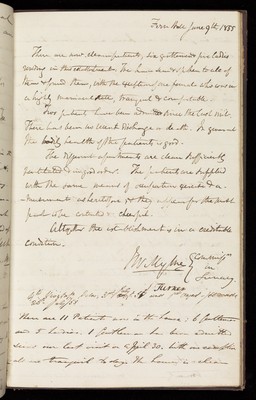 Fern Hill June 9th 1855
There are now eleven patients, six gentlemen & five ladies
residing in this establishment. We have seen & spoken to all of
them & found them, with the exception of one female who was in
a highly maniacal state, tranquil & comfortable.
Two patients have been admitted since the last visit.
There has been no recent discharge or death. In general
the bodily health of the patients is good.
The different apartments are clean sufficiently
ventilated & in good order. The patients are supplied
with the same means of occupation exercise & a-
-musement as heretofore & they appear for the most
part to be contented & cheerful.
Altogether the establishment is in a creditable
condition.
W Mylne
Turner
Commiss
in
Lunacy
There are 11 Patients now in the house, 6 Gentlemen
and 5 Ladies. 1 Gentleman has been admitted
since our last visit on April 30. With one exception
all are tranquil to day. The house is clean